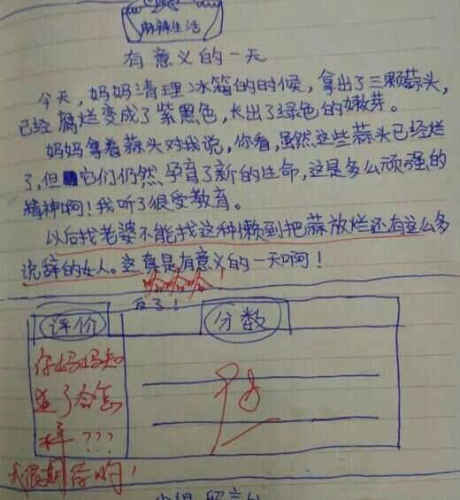 麻辣生活
有意义的一天
今天，妈妈清理冰箱的的时候，拿出了三颗蒜头，
已经腐烂变成了紫黑色，长出了绿色的嫩芽。
妈妈拿着蒜头对我说，你看，虽然这些蒜头已经烂
了，但它们仍然孕育了新的生命，这是多么顽强的
精神啊！我听了很受教育。
以后找老婆不能找这种懒到把蒜放烂还有这么多
说辞的女人。这真是有意义的一天啊！
哈哈哈哈
反了！
评价 分数
你妈妈知
道了会怎
样？？？
优